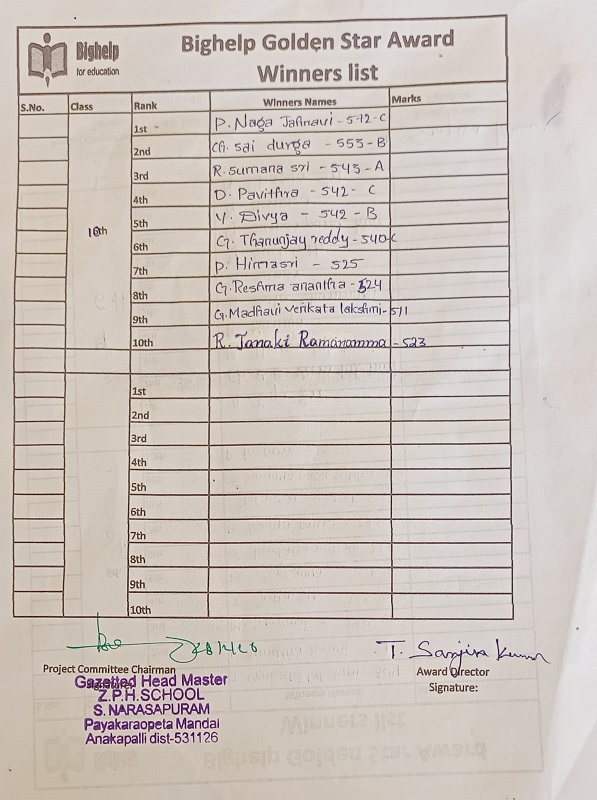 Bighelp
for education
Bighelp Golden Star Award
Winners list
S.No. Class Rank Winners Names Marks
10th
1st P. Naga Jahnavi - 572 - C
2nd Ch. sai durga - 553 - B
3rd R. sumana sri - 545 - A
4th D. Pavithra - 542 - C
5th Y. Divya - 542 - B
6th G. Thanunjay reddy - 540 - C
7th P. Himasri - 525
8th G. Reshma anantha - 524
9th G. Madhavi venkata lakshmi - 511
10th R. Janaki Ramanamma - 523
1st
2nd
3rd
4th
5th
6th
7th
8th
9th
10th
T. Sanjiva Kumar
Project Committee Chairman
Award Director
Signature:
Gazetted Head Master
Z.P.H.SCHOOL
S. NARASAPURAM
Payakaraopeta Mandal
Anakapalli dist-531126